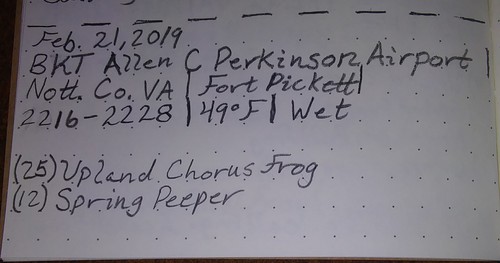 Feb. 21, 2019
BKT Allen C Perkinson Airport |
Nott. Co. VA | Fort Pickett |
2216-2228 | 49°F | Wet
(25) Upland Chorus Frog
(12) Spring Peeper